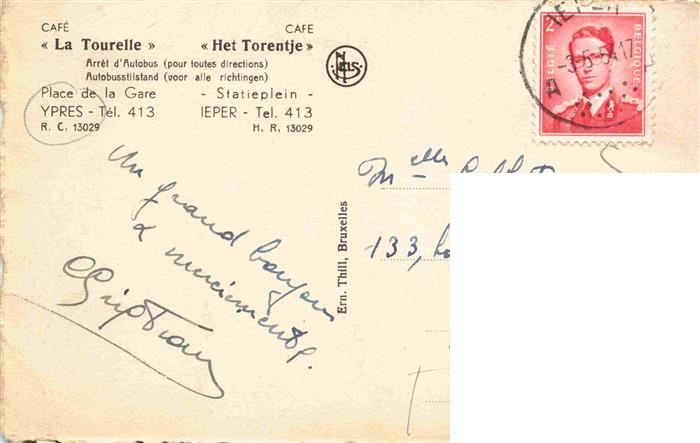 CAFÉ
« La Tourelle »
Arrêt d'Autobus (pour toutes directions)
Autobusstilstand (voor alle richtingen)
Place de la Gare
YPRES - Tél. 413
R. C. 13029
CAFE
« Het Torentje »
- Statieplein -
IEPER - Tel. 413
H. R. 13029
NELS
BELGIË
BELGIQUE
2
-3-5-54 17
Un grand bonjour
& remerciements.
Ern. Thill, Bruxelles
Melle
133,